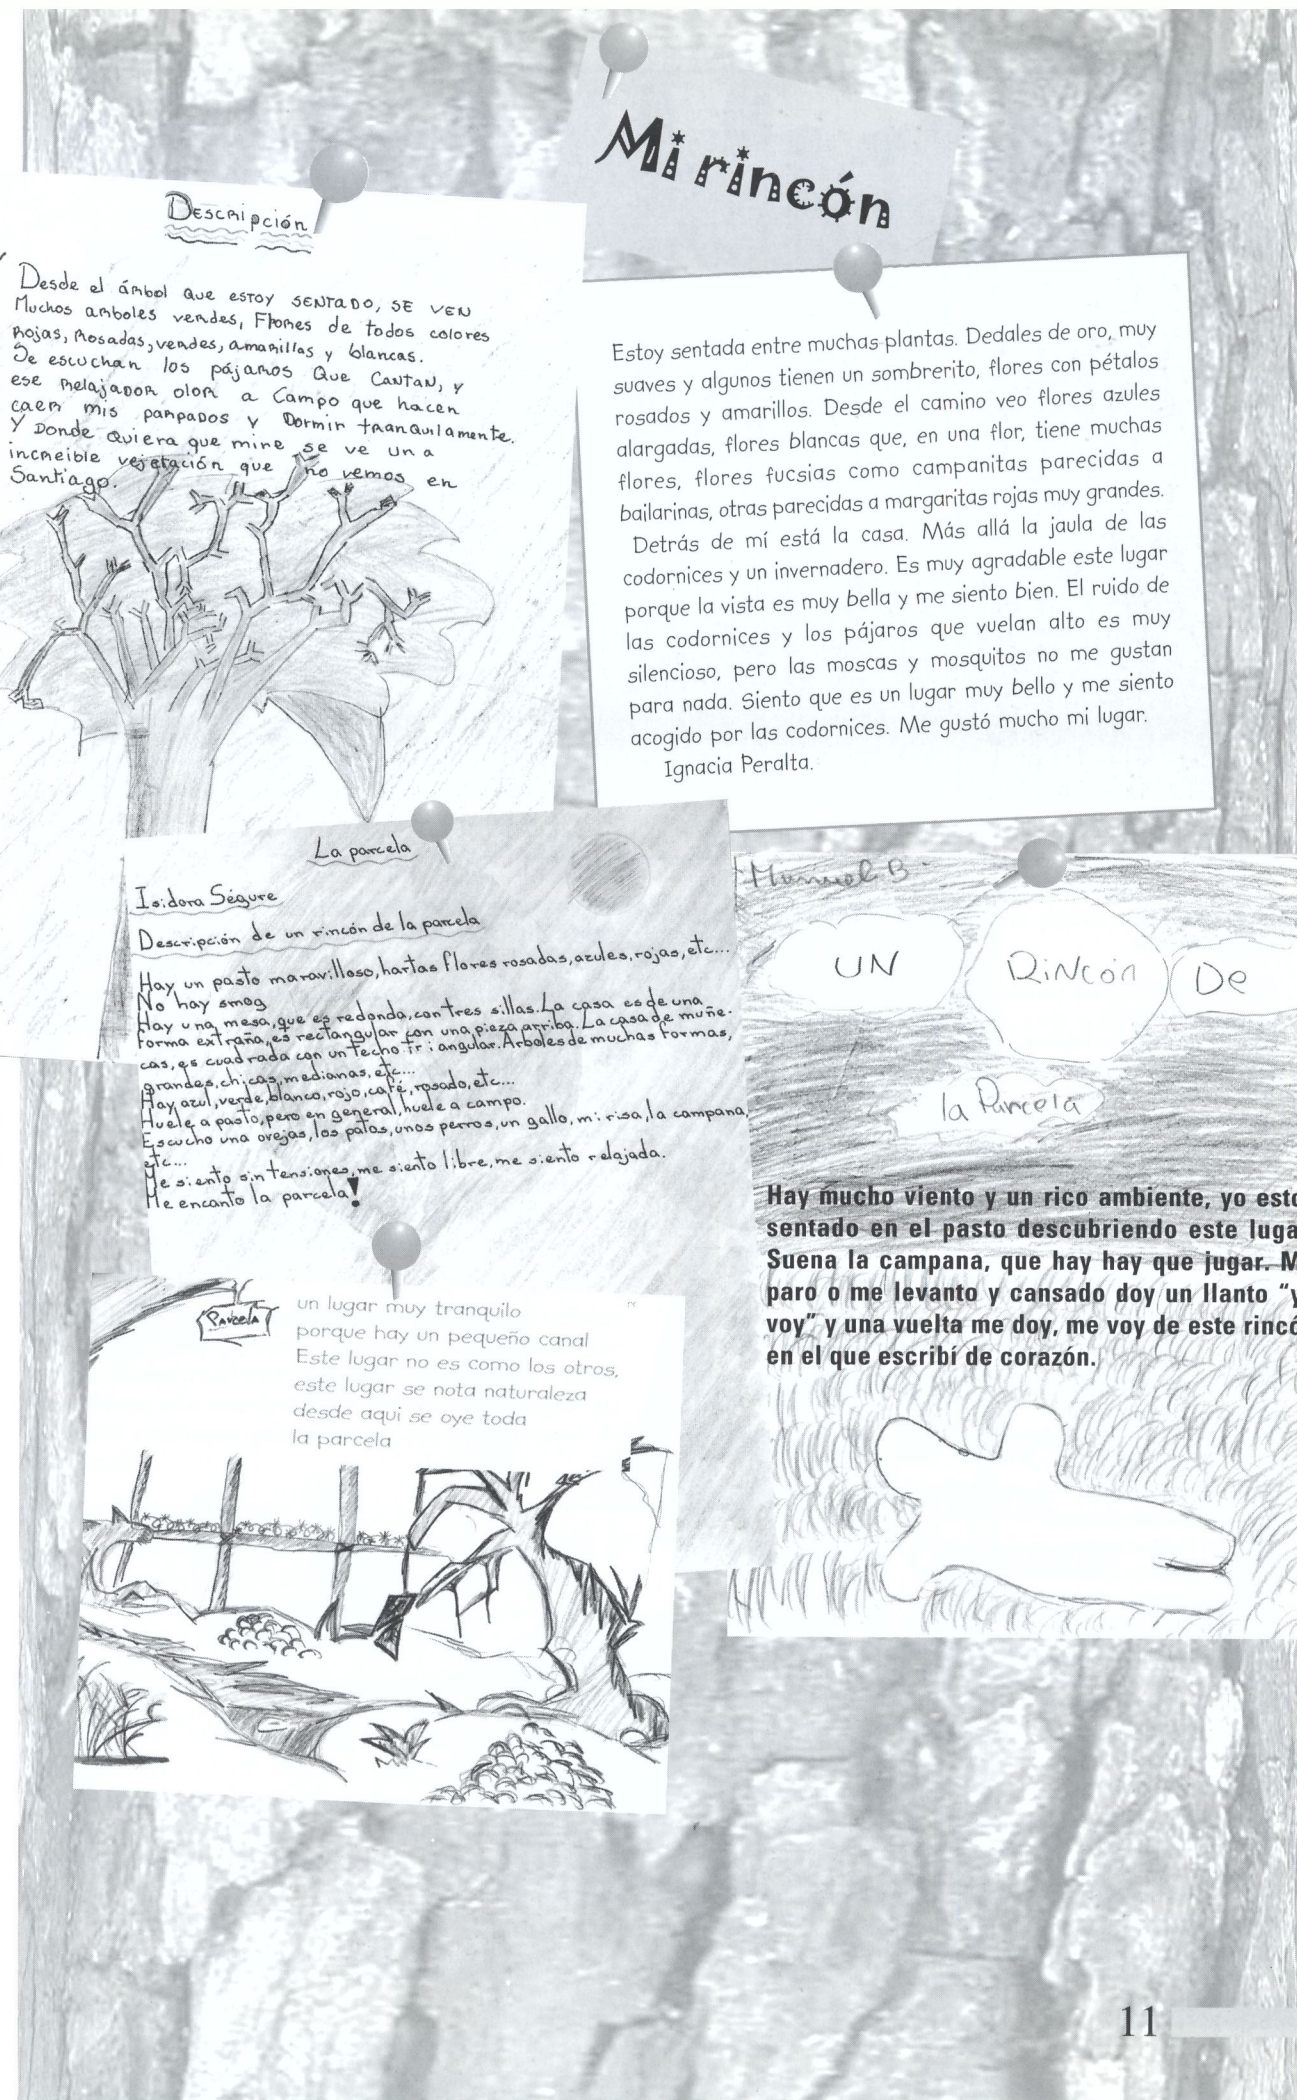 Mi rincón
Descripción
Desde el árbol que estoy sentado, se ven
Muchos arboles verdes, Flores de todos colores
Rojas, Rosadas, verdes, amarillas y blancas.
Se escuchan los pájaros Que Cantan, y
ese Relajador olor a Campo que hacen
caer mis parpados y Dormir tranquilamente.
Y Donde Quiera que mire se ve una
increible vejetación que no vemos en
Santiago.
Estoy sentada entre muchas plantas. Dedales de oro, muy
suaves y algunos tienen un sombrerito, flores con pétalos
rosados y amarillos. Desde el camino veo flores azules
alargadas, flores blancas que, en una flor, tiene muchas
flores, flores fucsias como campanitas parecidas a
bailarinas, otras parecidas a margaritas rojas muy grandes.
Detrás de mí está la casa. Más allá la jaula de las
codornices y un invernadero. Es muy agradable este lugar
porque la vista es muy bella y me siento bien. El ruido de
las codornices y los pájaros que vuelan alto es muy
silencioso, pero las moscas y mosquitos no me gustan
para nada. Siento que es un lugar muy bello y me siento
acogido por las codornices. Me gustó mucho mi lugar.
Ignacia Peralta.
La parcela
Isidora Ségure
Descripción de un rincón de la parcela
Hay un pasto maravilloso, hartas flores rosadas, azules, rojas, etc...
No hay smog
Hay una mesa, que es redonda, con tres sillas. La casa es de una
forma extraña, es rectangular con una pieza arriba. La casa de muñe-
cas, es cuadrada con un techo triangular. Arboles de muchas formas,
grandes, chicas, medianas, etc...
Hay azul, verde, blanco, rojo, café, rosado, etc...
Huele a pasto, pero en general, huele a campo.
Escucho una ovejas, los patos, unos perros, un gallo, mi risa, la campana,
etc...
Me siento sin tensiones, me siento libre, me siento relajada.
Me encanto la parcela!
Manuel B.
UN RINCÓN De
la Parcela
Hay mucho viento y un rico ambiente, yo esto
sentado en el pasto descubriendo este luga
Suena la campana, que hay hay que jugar. M
paro o me levanto y cansado doy un llanto "y
voy" y una vuelta me doy, me voy de este rincó
en el que escribí de corazón.
Parcela
un lugar muy tranquilo
porque hay un pequeño canal
Este lugar no es como los otros,
este lugar se nota naturaleza
desde aqui se oye toda
la parcela
11